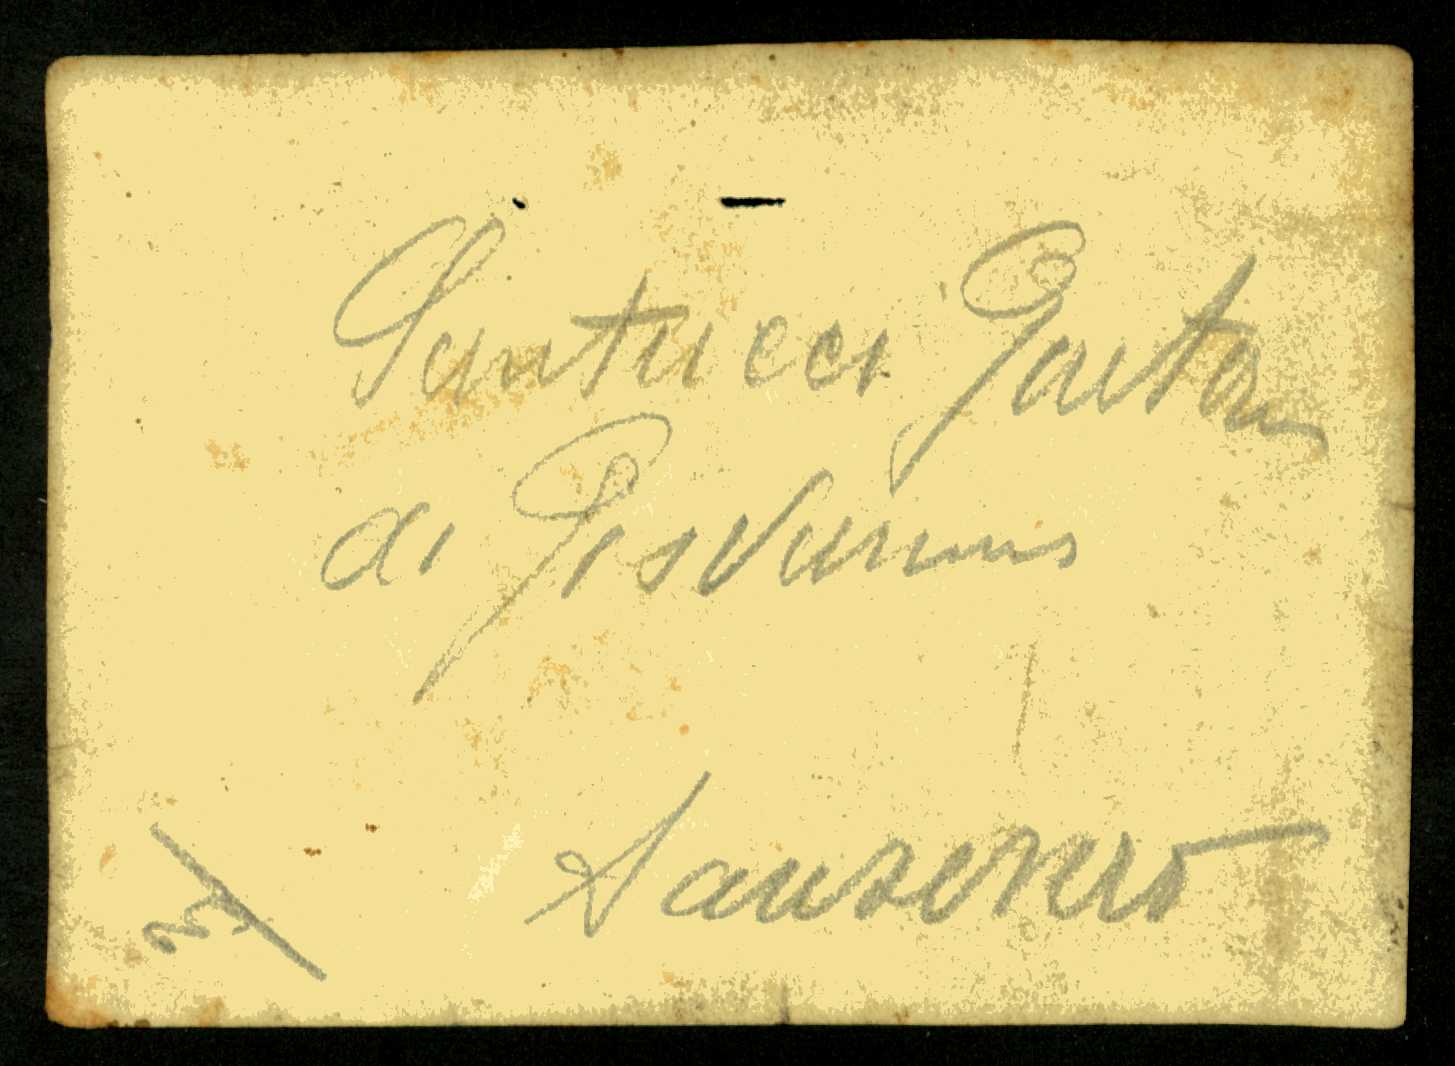 Santucci Gaetano
di Giovanni
Sansevero